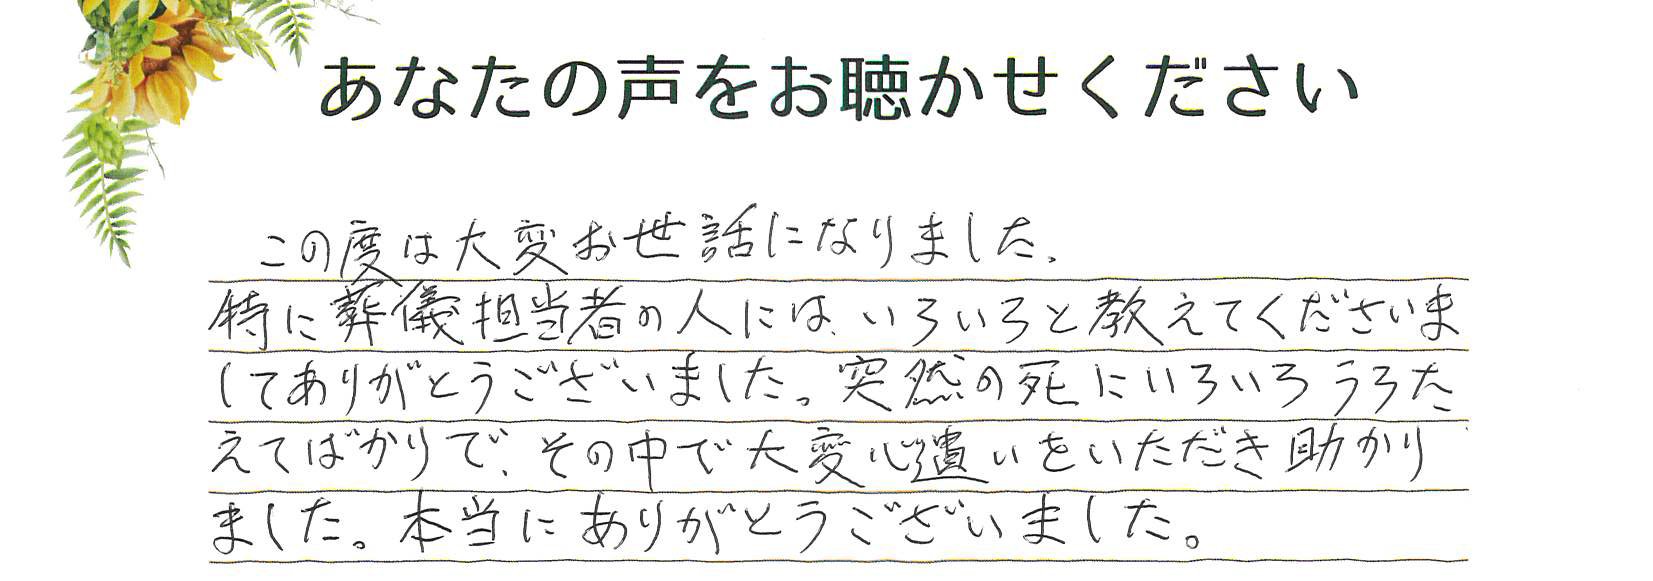 あなたの声をお聴かせください
この度は大変お世話になりました.
特に葬儀担当者の人には、いろいろと教えてくださいま
してありがとうございました。突然の死にいろいろうろた
えてばかりで、その中で大変心遣いをいただき助かり
ました。本当にありがとうございました。